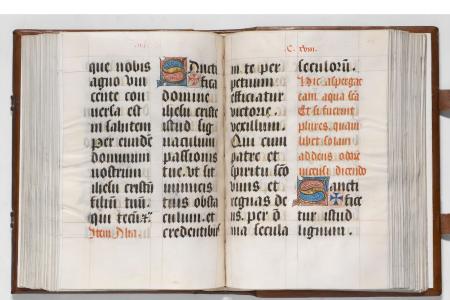 C. xviii.
que nobis
agno vin
cente con
uersa est
in salutem
Per eundē
dominum
nostrum
ihesu cristū
filiū tuū.
qui tecū
Item Alia.
Sancti
fica
domine
ihesu criste
istud sig
naculum
passionis
tue. vt sit
inimicis
tuis obsta
culum. et
credentibꝰ
in te per
petuum
efficiatur
victorie
vexillum.
Qui cum
patre et
spiritu sco
viuis et
regnas de
us. per ō
nia secula
seculorū.
Hic aspergat
eam aqua scā
Et si fuerint
plures, quam
libet solam
addens
dicendo
Sancti
fice
tur istud
lignum.